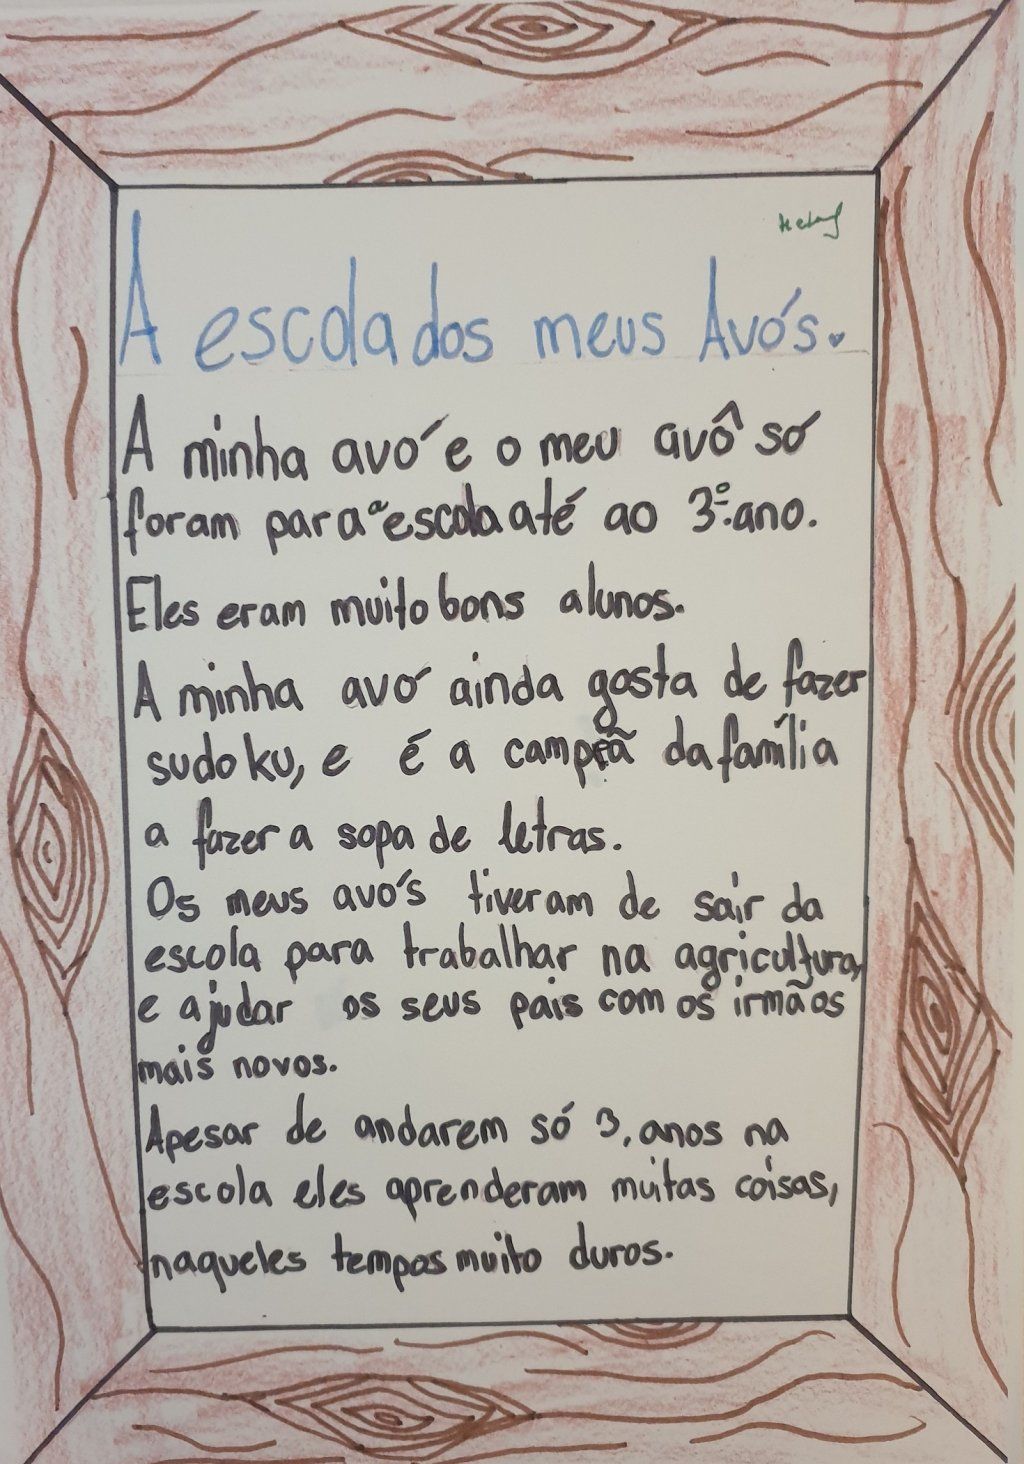 A escola dos meus Avós.
A minha avó e o meu avô só
foram para a escola até ao 3.º ano.
Eles eram muito bons alunos.
A minha avó ainda gosta de fazer
sudoku, e é a campeã da família
a fazer a sopa de letras.
Os meus avós tiveram de sair da
escola para trabalhar na agricultura,
e ajudar os seus pais com os irmãos
mais novos.
Apesar de andarem só 3, anos na
escola eles aprenderam muitas coisas,
naqueles tempos muito duros.